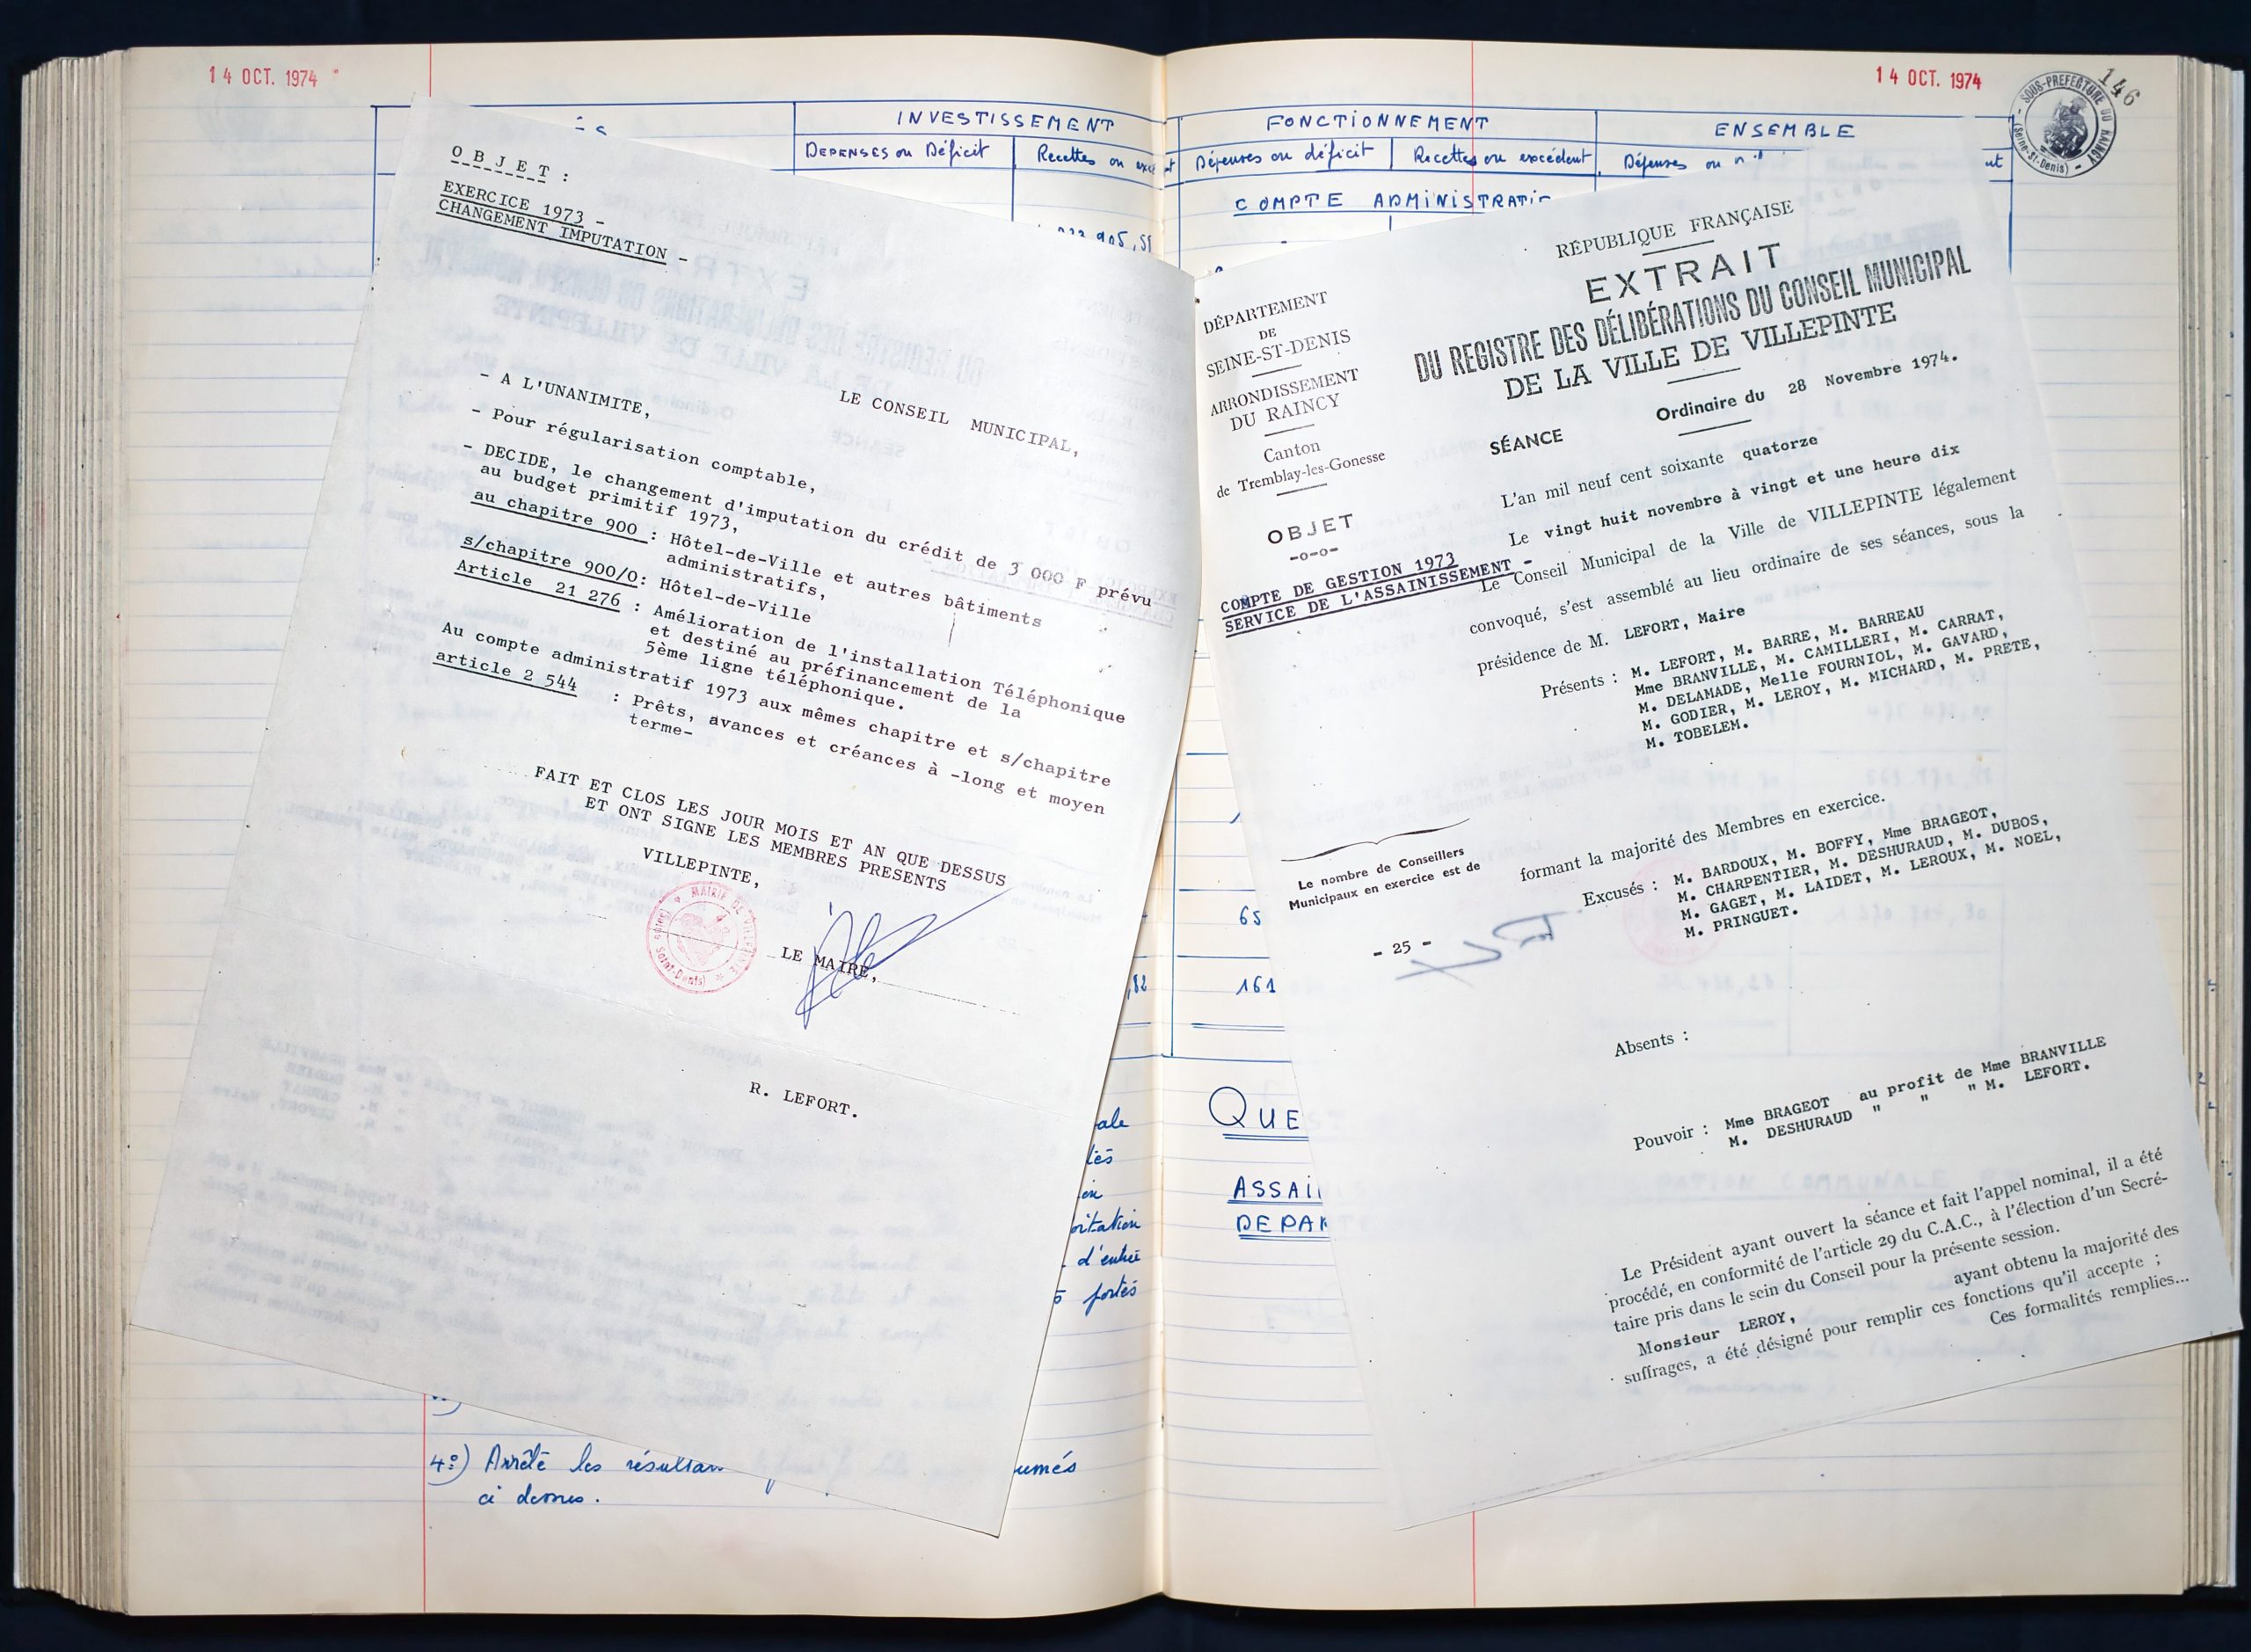 14 OCT. 1974
INVESTISSEMENT
DEPENSES ou Déficit
Recettes ou
905,55
OBJET :
EXERCICE 1973 -
CHANGEMENT IMPUTATION -
LE CONSEIL MUNICIPAL,
- A L'UNANIMITE,
- Pour régularisation comptable,
- DECIDE, le changement d'imputation du crédit de 3 000 F prévu
au budget primitif 1973,
au chapitre 900 : Hôtel-de-Ville et autres bâtiments
administratifs,
s/chapitre 900/0: Hôtel-de-Ville
Article 21 276 : Amélioration de l'installation Téléphonique
et destiné au préfinancement de la
5ème ligne téléphonique.
Au compte administratif 1973 aux mêmes chapitre et s/chapitre
article 2 544 : Prêts, avances et créances à -long et moyen
terme-
FAIT ET CLOS LES JOUR MOIS ET AN QUE DESSUS
ET ONT SIGNE LES MEMBRES PRESENTS
VILLEPINTE,
MAIRIE DE VILLEPINTE
Saint-Denis)
LE MAIRE,
R. LEFORT.
,82
ale
d'entrée
portés
4°) Arrêté les
umés
ci dessus.
14 OCT. 1974
146
SOUS-PREFECTURE DU RAINCY
(Seine-St-Denis)
FONCTIONNEMENT
ENSEMBLE
Dépenses ou déficit
Recettes ou excédent
Dépenses ou
COMPTE ADMINISTRATIF
RÉPUBLIQUE FRANÇAISE
EXTRAIT
DU REGISTRE DES DÉLIBÉRATIONS DU CONSEIL MUNICIPAL
DE LA VILLE DE VILLEPINTE
DÉPARTEMENT
DE
SEINE-ST-DENIS
ARRONDISSEMENT
DU RAINCY
Canton
de Tremblay-les-Gonesse
OBJET
-o-o-
COMPTE DE GESTION 1973
SERVICE DE L'ASSAINISSEMENT -
SÉANCE Ordinaire du 28 Novembre 1974.
L'an mil neuf cent soixante quatorze
Le vingt huit novembre à vingt et une heure dix
Le Conseil Municipal de la Ville de VILLEPINTE légalement
convoqué, s'est assemblé au lieu ordinaire de ses séances, sous la
présidence de M. LEFORT, Maire
Présents : M. LEFORT, M. BARRE, M. BARREAU
Mme BRANVILLE, M. CAMILLERI, M. CARRAT,
M. DELAMADE, Melle FOURNIOL, M. GAVARD,
M. GODIER, M. LEROY, M. MICHARD, M. PRETE,
M. TOBELEM.
formant la majorité des Membres en exercice.
Excusés : M. BARDOUX, M. BOFFY, Mme BRAGEOT,
M. CHARPENTIER, M. DESHURAUD, M. DUBOS,
M. GAGET, M. LAIDET, M. LEROUX, M. NOEL,
M. PRINGUET.
Le nombre de Conseillers
Municipaux en exercice est de
- 25 -
Absents :
Pouvoir : Mme BRAGEOT au profit de Mme BRANVILLE
M. DESHURAUD " " " M. LEFORT.
Le Président ayant ouvert la séance et fait l'appel nominal, il a été
procédé, en conformité de l'article 29 du C.A.C., à l'élection d'un Secré-
taire pris dans le sein du Conseil pour la présente session.
Monsieur LEROY, ayant obtenu la majorité des
suffrages, a été désigné pour remplir ces fonctions qu'il accepte ;
Ces formalités remplies...
65
161
QUE
ASSAI
DEPAR